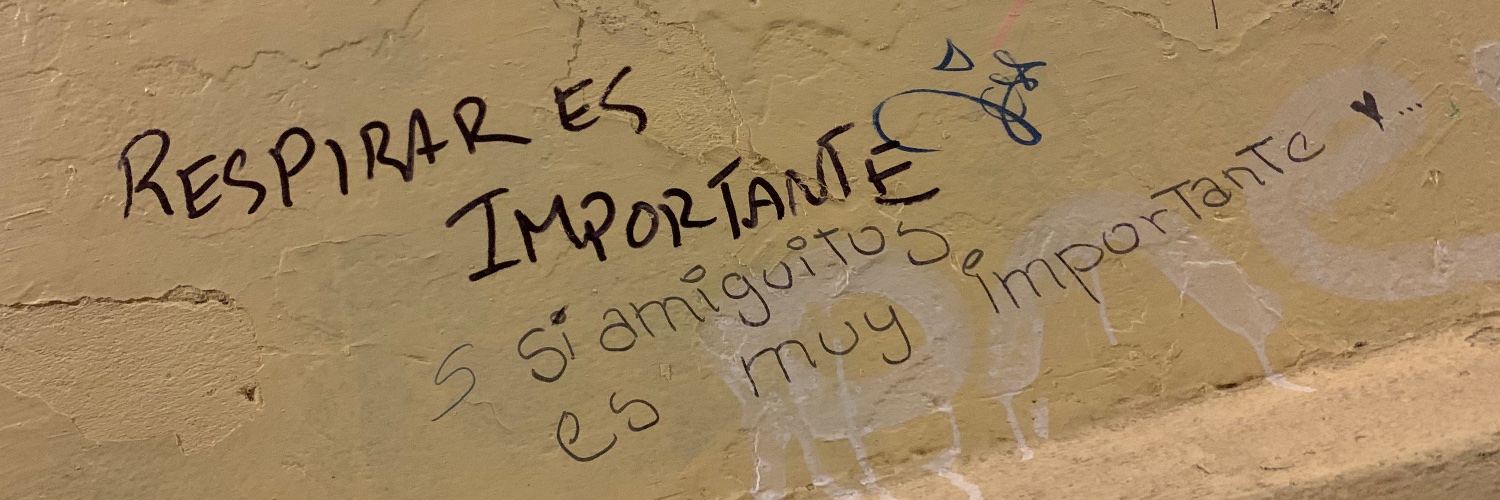 RESPIRAR ES
IMPORTANTE
S si amiguitos
es muy importante ♥...